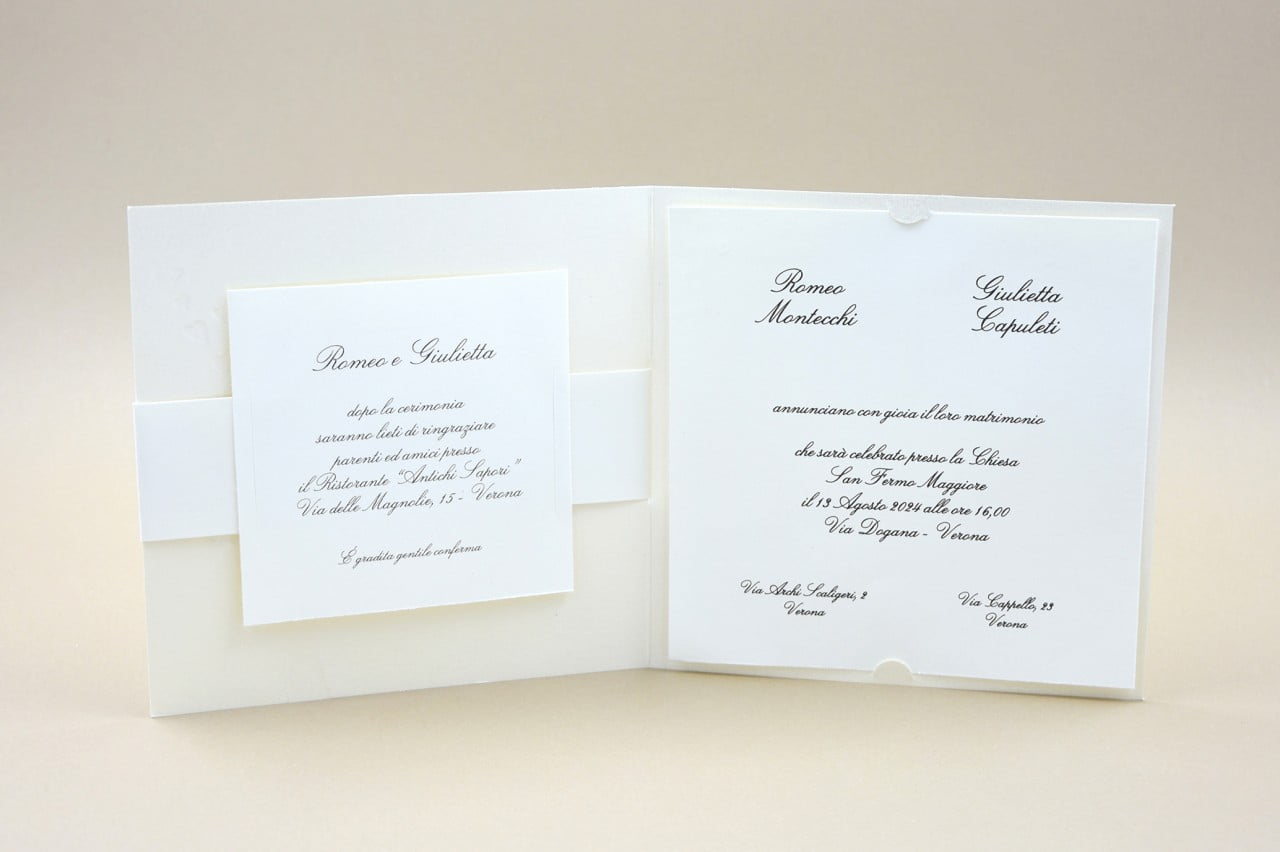 Romeo e Giulietta
dopo la cerimonia
saranno lieti di ringraziare
parenti ed amici presso
il Ristorante “Antichi Sapori”
Via delle Magnolie, 15 - Verona
È gradita gentile conferma
Romeo
Montecchi
Giulietta
Capuleti
annunciano con gioia il loro matrimonio
che sarà celebrato presso la Chiesa
San Fermo Maggiore
il 13 Agosto 2024 alle ore 16,00
Via Dogana - Verona
Via Archi Scaligeri, 2
Verona
Via Cappello, 23
Verona